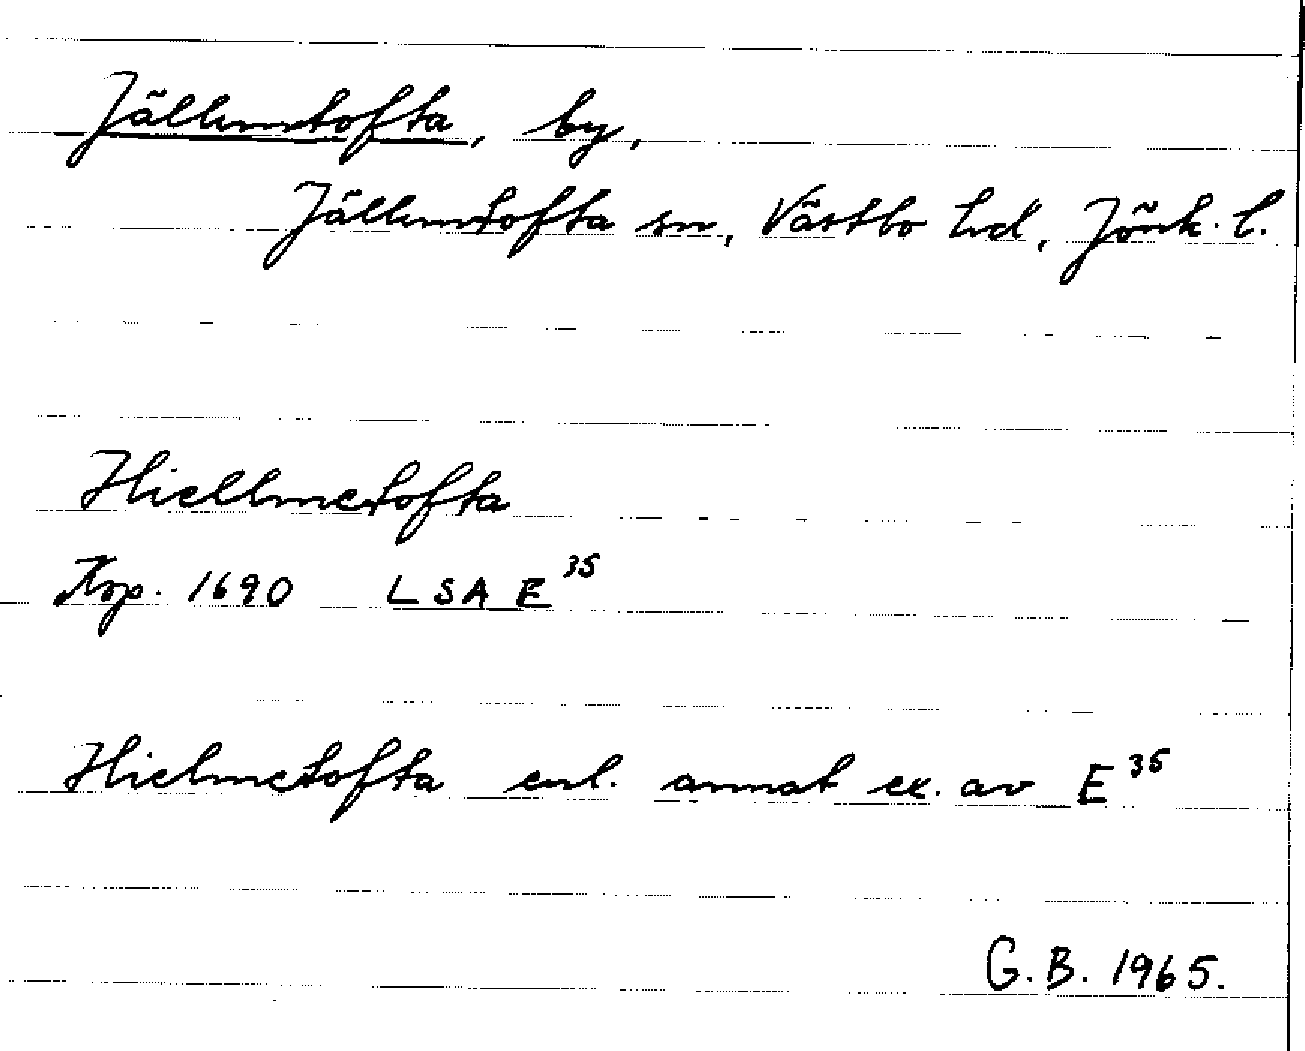 Jälluntofta, by,
Jälluntofta sn, Västbo hd, Jönk. l.
Hiellmetofta
Kop. 1690 LSA E³⁵
Hielmetofta enl. annat ex. av E³⁵
G.B. 1965.